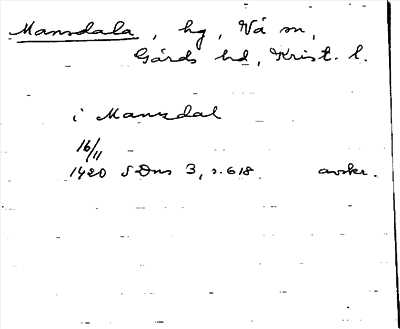 Mansdala, hg, Vä sn,
Gärds hd, Krist. l.
i Mansdal
16/11
1420 SDns 3, s. 618 avskr.